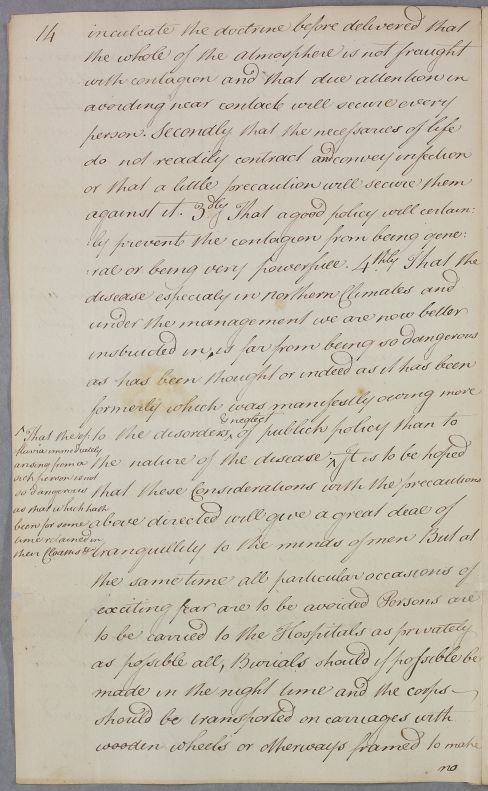 14
inculcate the doctrine before delivered that
the whole of the atmosphere is not fraught
with contagion and that due attention in
avoiding near contact will secure every
person. Secondly that the necessaries of life
do not readily contract and convey infection
or that a little precaution will secure them
against it. 3dly That a good policy will certain:
ly prevent the contagion from being gene:
ral or being very powerfull. 4thly That the
disease especialy in northern Climates and
under the management we are now better
instructed in, is far from being so dangerous
as has been thought or indeed as it has been
formerly which was manifestly owing more
to the disorders ^ & neglect of publick policy than to
the nature of the disease. ^ It is to be hoped
that these Considerations with the precautions
above directed will give a great deal of
tranquillity to the minds of men But at
the same time all particular occasions of
exciting fear are to be avoided Persons are
to be carried to the Hospitals as privately
as possible all, Burials should if possible be
made in the night time and the corps
should be transported on carriages with
wooden wheels or otherways framed to make
no
^ That the ef:
fluvia immediately
arising from a
sick person is not
so dangerous
as that which hath
been for some
time retained in
their Cloaths &c